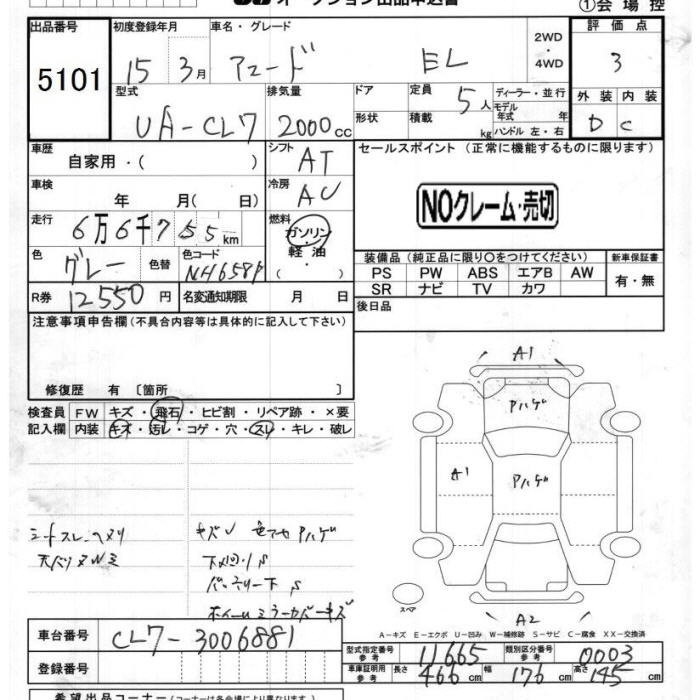 オークション出品申込書
①会場控
出品番号
5101
初度登録年月
15 3月
車名・グレード
アコード EL
2WD
・
4WD
評価点
3
型式
UA-CL7
排気量
2000cc
ドア
形状
定員 5人
積載 kg
ディーラー・並行
モデル年式 年
ハンドル 左・右
外装 内装
D C
車歴
自家用・( )
シフト
AT
セールスポイント (正常に機能するものに限ります)
NOクレーム・売切
車検
年 月( 日)
冷房
AC
走行
6万6千755km
燃料
ガソリン
・
軽油
・( )
色
グレー
色替
色コード
NH658P
装備品 (純正品に限り○をつけてください)
新車保証書
PS PW ABS エアB AW
SR ナビ TV カワ
有・無
R券 12550円
名変通知期限 月 日
後日品
注意事項申告欄 (不具合内容等は具体的に記入して下さい)
修復歴 有 〔箇所 〕
検査員 FW キズ・飛石・ヒビ割・リペア跡・×要
記入欄 内装 キズ・汚レ・コゲ・穴・スレ・キレ・破レ
A1
Pハゲ
A1
Pハゲ
A2
スペア
シートスレ
キズU 色アセ Pハゲ
下廻りS
バッテリー下 S
ホイール ミラーカバーキズ
A-キズ E-エクボ U-凹み W-補修跡 S-サビ C-腐食 XX-交換済
車台番号
CL7-3006881
登録番号
型式指定番号 参考 11665
類別区分番号 参考 0003
車庫証明用 参考 長さ 466 幅 176 高さ 145
希望出品コーナー